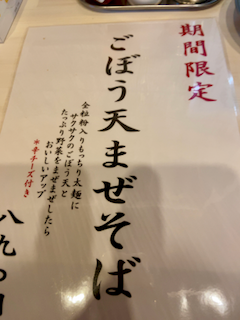 期間限定
ごぼう天まぜそば
全粒粉入りもっちり太麺に
サクサクのごぼう天と
たっぷり野菜をまぜまぜしたら
おいしいアップ
※辛チーズ付き
八九〇円